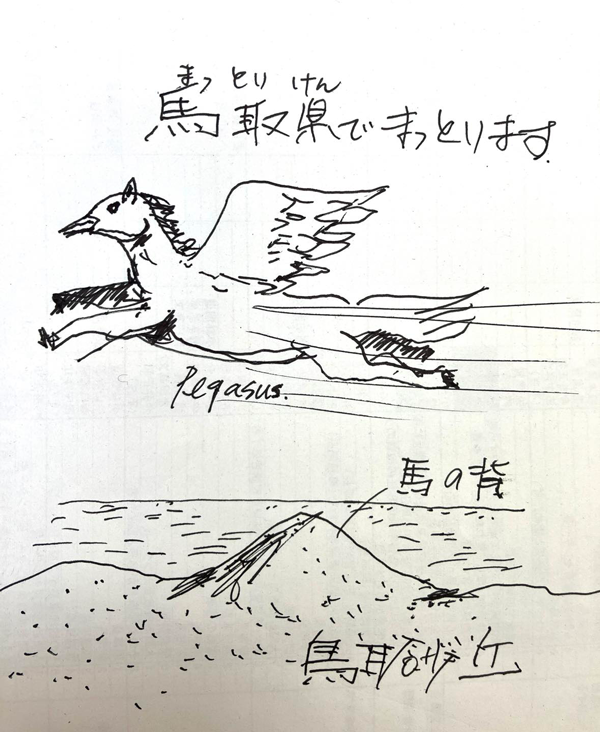 まっ とり けん
馬取県でまっとります.
Pegasus.
馬の背
鳥取砂丘